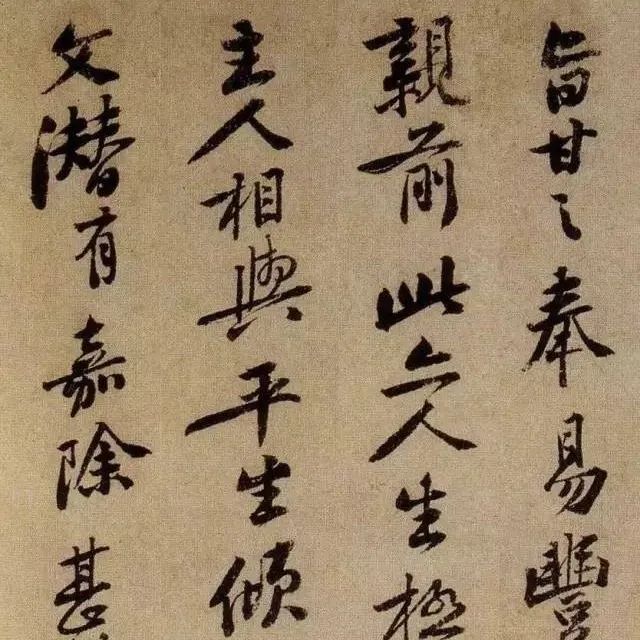 旨甘之奉易豐
親前此亦人生極
主人相與平生傾
文潛有嘉除甚